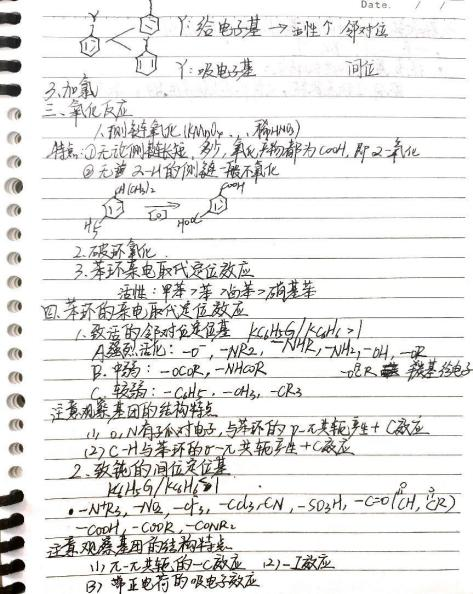 Date. / /
Y
Y: 给电子基 → 活性个 邻对位
Y: 吸电子基 间位
3. 加氯
三、氧化反应
1. 侧链氧化 (KMnO4、稀HNO3)
特点: ①无论侧链长短, 多少, 氧化产物都为COOH, 即α-氧化
②无α-H的侧链一般不氧化
CH(CH3)2
COOH
[O]
HOOC
2. 破环氧化
3. 苯环亲电取代定位效应
活性: 甲苯>苯>卤苯>硝基苯
四、苯环的亲电取代定位效应
1. 致活的邻对位定位基 KC6H5G/KC6H6>1
A. 强烈活化: -O⁻, -NR2, -NHR, -NH2, -OH, -OR
B. 中弱: -OCOR, -NHCOR 羰基给电子
C. 较弱: -C6H5, -CH3, -CR3
注意观察基团的结构特点
(1) O, N有孤对电子, 与苯环的p-π共轭产生+C效应
(2) C-H与苯环的σ-π共轭产生+C效应
2. 致钝的间位定位基
KC6H5G/KC6H6 1
-N⁺R3, -NO2, -CF3, -CCl3, -CN, -SO3H, -C=O (CH, CR)
-COOH, -COOR, -CONR2
注意观察基团的结构特点
(1) π-π共轭的-C效应 (2) -I效应
(3) 带正电荷的吸电子效应